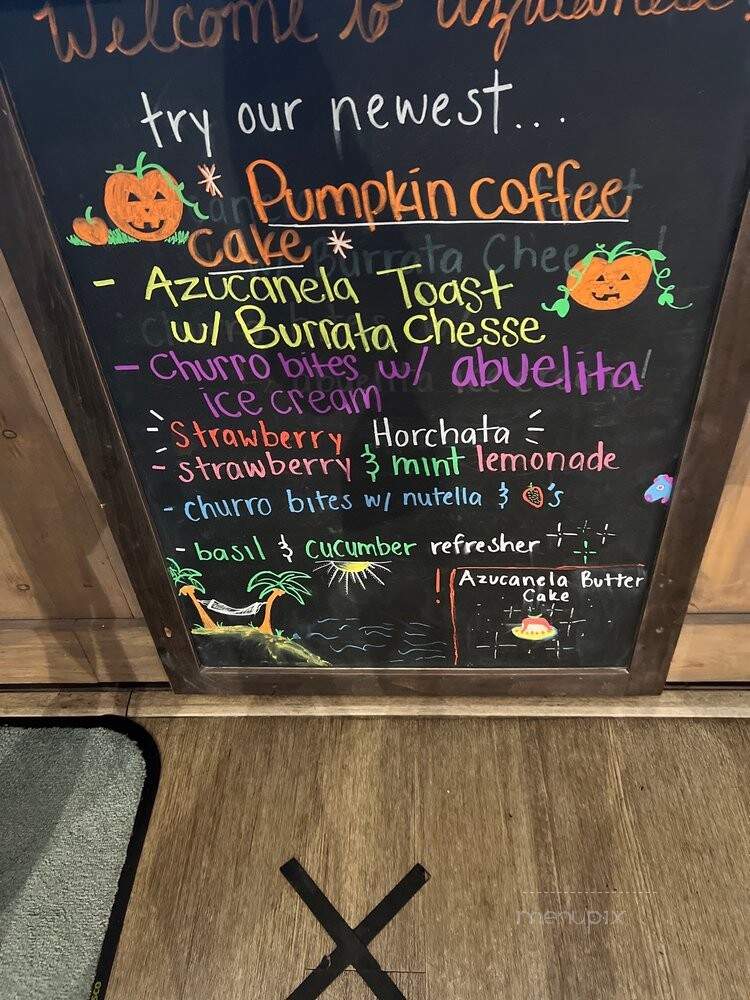 Welcome to Azucanela!
try our newest...
* Pumpkin coffee
cake *
- Azucanela Toast
w/ Burrata Chesse
- Churro bites w/ abuelita
ice cream
Strawberry Horchata
- strawberry & mint lemonade
- churro bites w/ nutella & 's
- basil & cucumber refresher
! Azucanela Butter
Cake
menupix